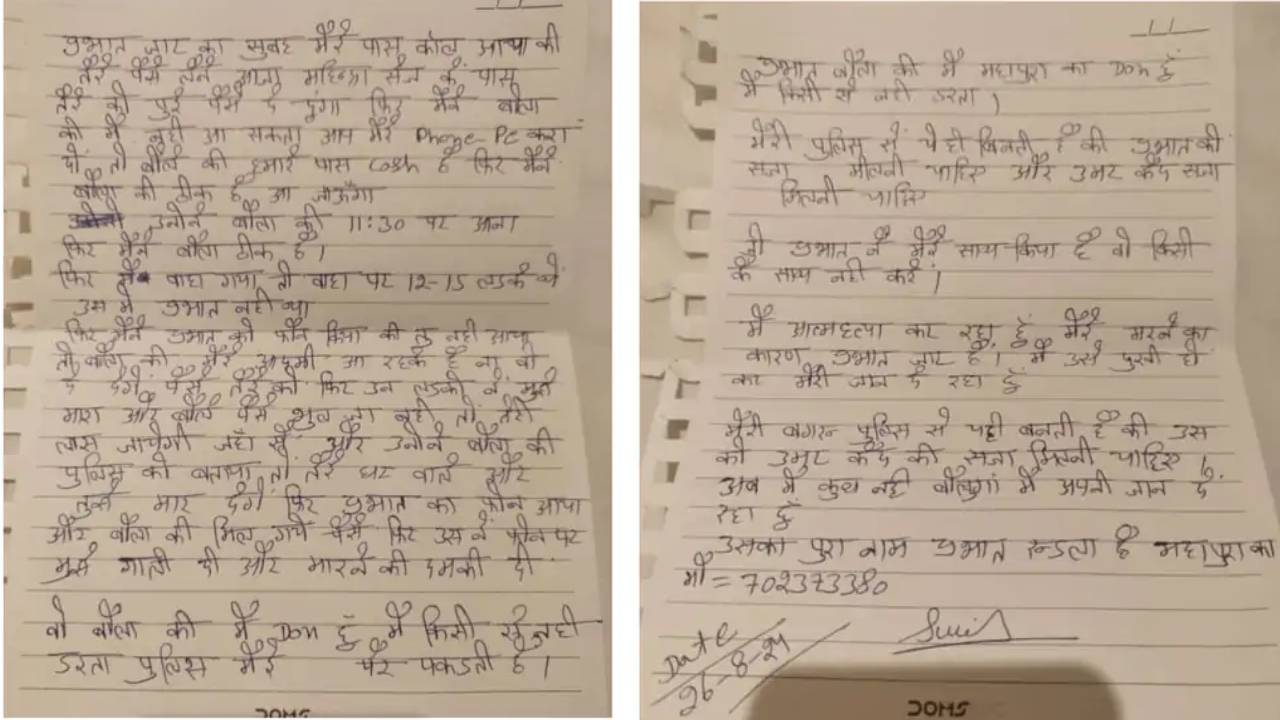 प्रभात जाट का सुबह मेरे पास कोल आया की
तेरे पैसे लेने आना महिन्द्रा सेज के पास
तेरे को पुरे पैसे दे दुंगा फिर मैने बोला
की मै नही आ सकता आप मेरे Phone Pe करा
दो तो बोले की हमारे पास cash है फिर मैने
बोला की ठीक है आ जाऊँगा
उनोने बोला की 11:30 पर आना
फिर मैने बोला ठीक है।
फिर मै वाहा गया तो वाहा पर 12-15 लडके थे
उस मे प्रभात नही था
फिर मैने प्रभात को फोन किया की तु नही आया
तो बोला की मेरे आदमी आ रहके है ना वो
दे देगे पैसे तेरे को फिर उन लडको ने मुझे
मारा और बोले पैसे भुल जा नही तो तेरी
लास जायेगी जहाँ से और उनोने बोला की
पुलिस को बताया तो तेरे घर वाले और
तुझे मार देगे फिर प्रभात का फोन आया
और बोला की मिल गये पैसे फिर उस ने फोन पर
मुझे गाली दी और मारने की दमकी दी
वो बोला की मै Don हुँ मै किसी से नही
डरता पुलिस मेरे पैर पकडती है।
DOMS
प्रभात बोला की मै महापुरा का Don हुँ
मै किसी से नही डरता।
मेरी पुलिस से ये ही बिनती है की प्रभात को
सजा मीलनी चाहिए और उमर कैद सजा
मिलनी चाहिए
जो प्रभात ने मेरे साथ किया है वो किसी
के साथ नही करे।
मै आत्महत्या कर रहा हुँ मेरे मरने का
कारण प्रभात जाट है। मै उसे दुखी हो
कर मेरी जान दे रहा हुँ
मेरी पुलिस से यही बनती है की उस
को उमर कैद की सजा मिलनी चाहिए।
अब मै कुछ नही बोलूगां मै अपनी जान दे
रहा हुँ
उसका पुरा नाम प्रभात रून्डला है महापुरा का
मो = 702373380
Date
26-8-24
DOMS